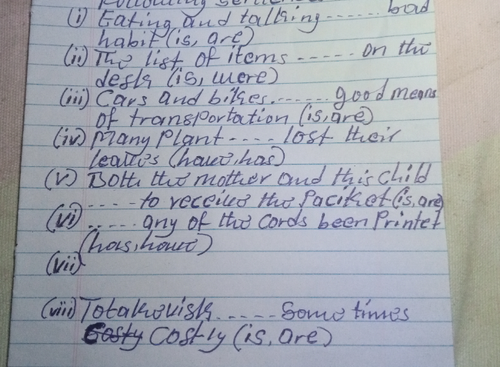 Following sentences
(i) Eating and talking ...... bad
habit (is, are)
(ii) The list of items ...... on the
desk (is, were)
(iii) Cars and bikes ...... good means
of transportation (is, are)
(iv) Many Plant .... lost their
leaves (have, has)
(v) Both the mother and this child
.... to receive the Packet (is, are)
(vi) ..... any of the cords been Printed
(has, have)
(vii)
(viii) To take risk ..... Some times
Costly Costly (is, are)